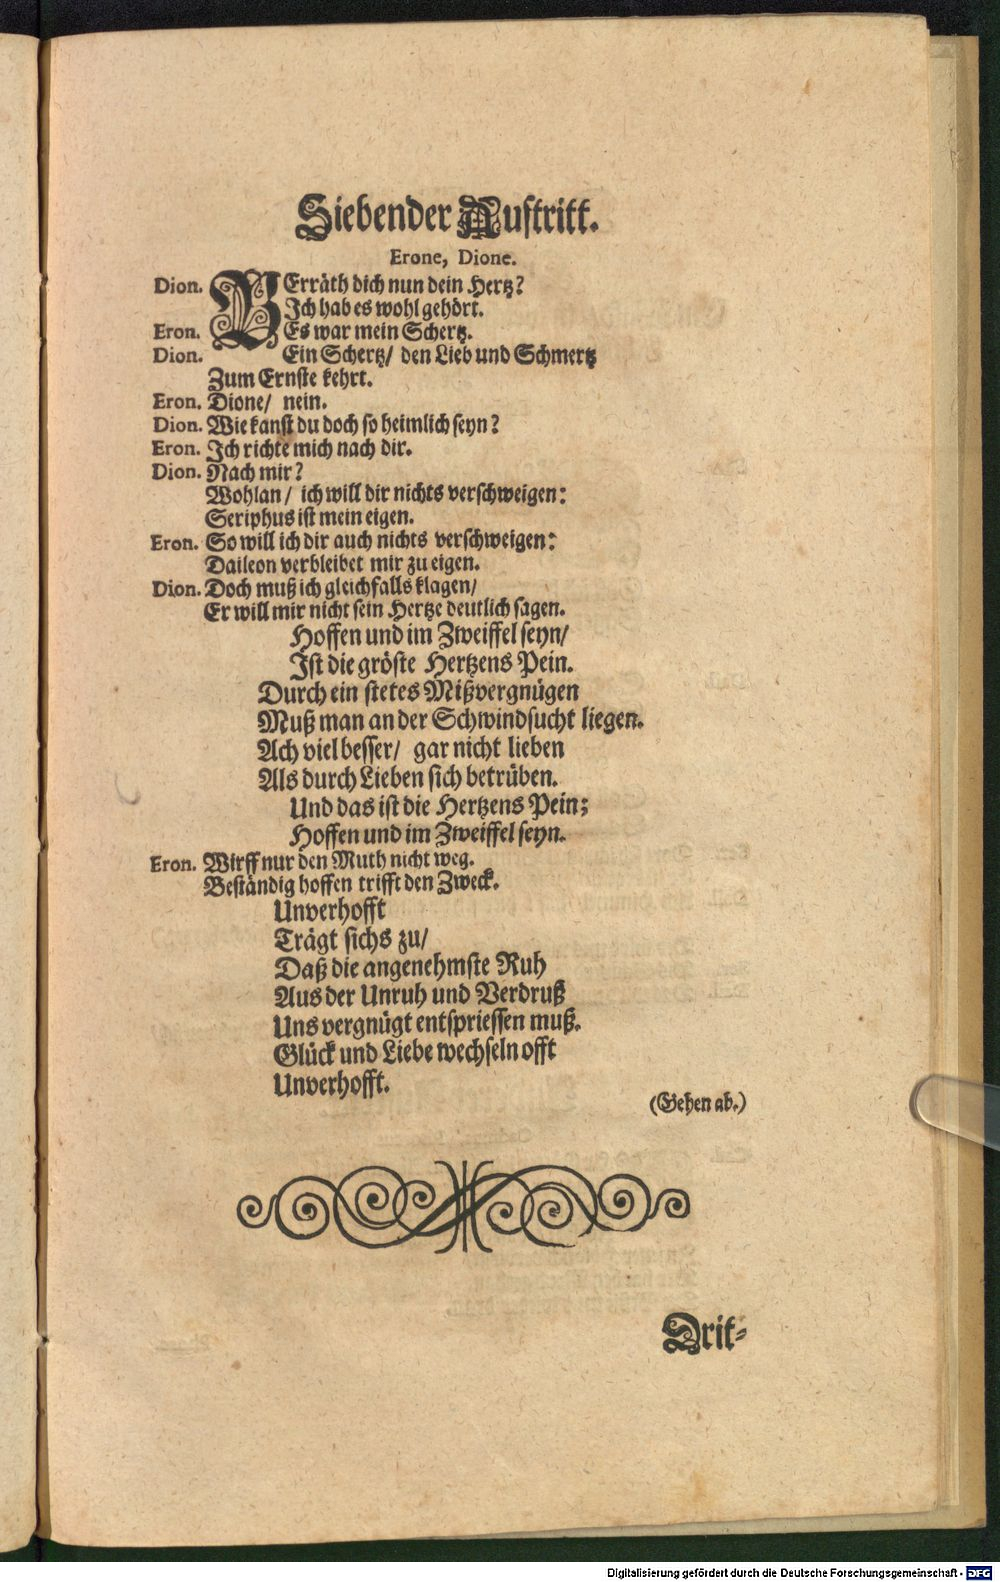 Siebender Auftritt.
Erone, Dione.
Dion. VErräth dich nun dein Hertz?
Ich hab es wohl gehört.
Eron. Es war mein Schertz.
Dion. Ein Schertz/ den Lieb und Schmertz
Zum Ernste kehrt.
Eron. Dione/ nein.
Dion. Wie kanst du doch so heimlich seyn?
Eron. Ich richte mich nach dir.
Dion. Nach mir?
Wohlan/ ich will dir nichts verschweigen:
Seriphus ist mein eigen.
Eron. So will ich dir auch nichts verschweigen:
Daileon verbleibet mir zu eigen.
Dion. Doch muß ich gleichfalls klagen/
Er will mir nicht sein Hertze deutlich sagen.
Hoffen und im Zweiffel seyn/
Ist die gröste Hertzens Pein.
Durch ein stetes Mißvergnügen
Muß man an der Schwindsucht liegen.
Ach viel besser/ gar nicht lieben
Als durch Lieben sich betrüben.
Und das ist die Hertzens Pein;
Hoffen und im Zweiffel seyn.
Eron. Wirff nur den Muth nicht weg.
Beständig hoffen trifft den Zweck.
Unverhofft
Trägt sichs zu/
Daß die angenehmste Ruh
Aus der Unruh und Verdruß
Uns vergnügt entspriessen muß.
Glück und Liebe wechseln offt
Unverhofft.
(Gehen ab.)
Drit-
Digitalisierung gefördert durch die Deutsche Forschungsgemeinschaft - DFG